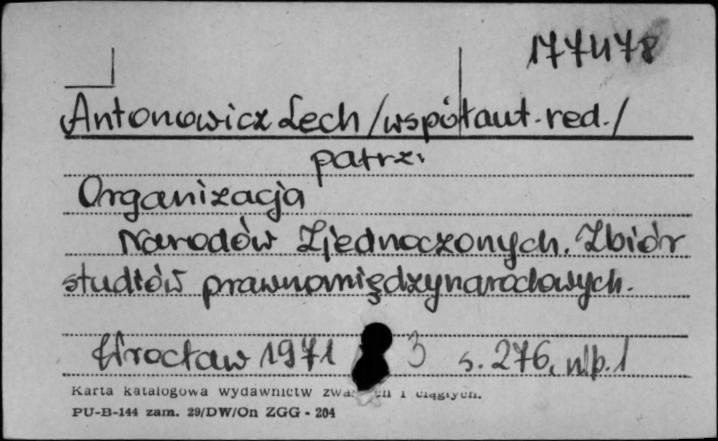 177478
Antonowicz Lech /współaut. red./
patrz:
Organizacja
Narodów Zjednoczonych. Zbiór
studiów prawnomiędzynarodowych.
Wrocław 1971 3 s. 276, nlb. 1
Karta katalogowa wydawnictw i ciągłych.
PU-B-144 zam. 29/DW/On ZGG - 204